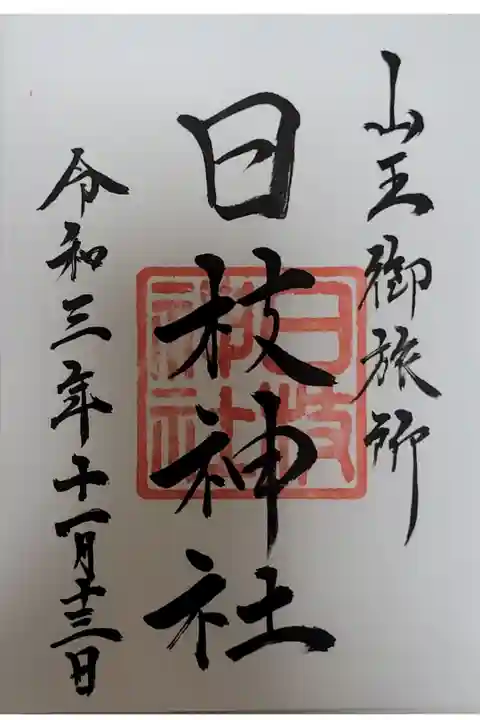 山王御旅所
日枝神社
日枝
神社
令和三年十一月十三日